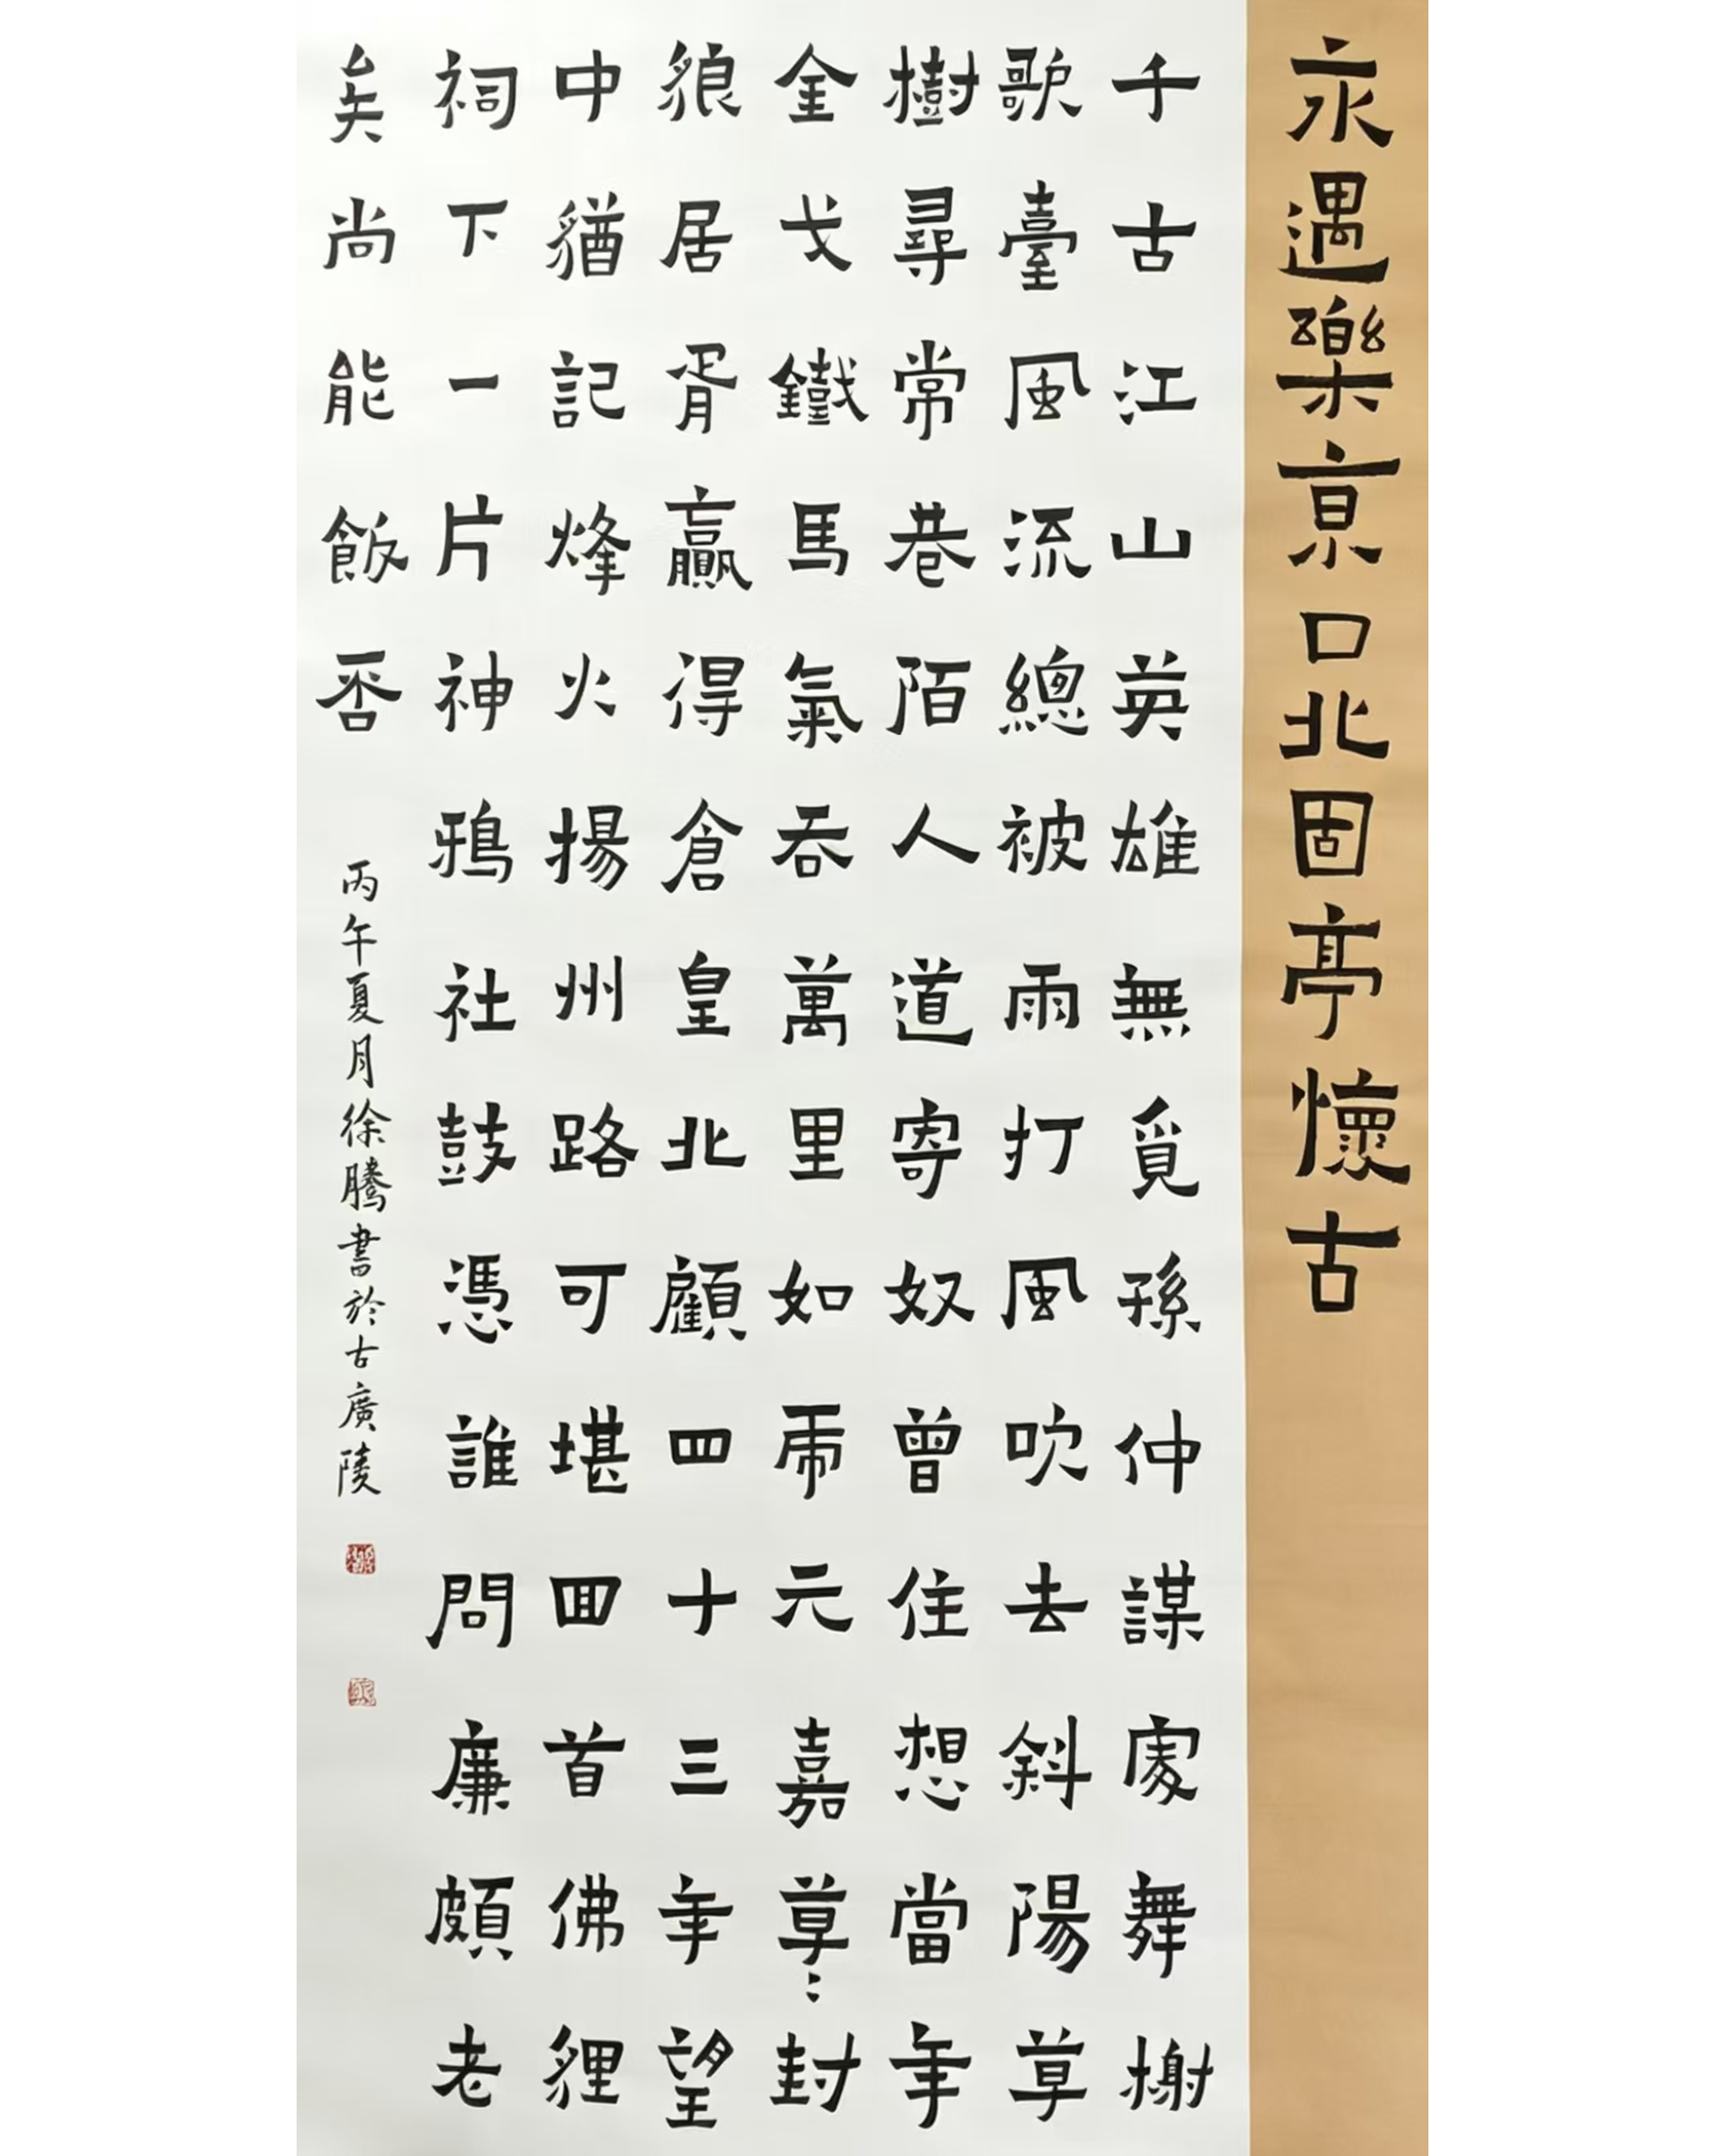 永遇樂亰口北固亭懷古
千古江山英雄無覓孫仲謀處舞榭
歌臺風流總被雨打風吹去斜陽草
樹尋常巷陌人道寄奴曾住想當年
金戈鐵馬氣吞萬里如虎元嘉草〻封
狼居胥贏得倉皇北顧四十三年望
中猶記烽火揚州路可堪回首佛貍
祠下一片神鴉社鼓憑誰問廉頗老
矣尚能飯否
丙午夏月徐騰書於古廣陵